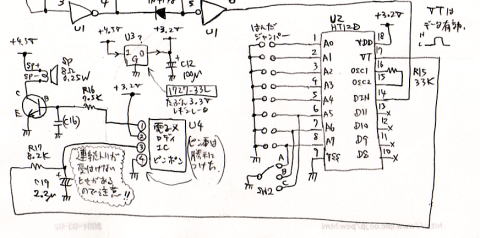 U1
U1
+4.5V
+3.2V
+4.5V
SP+
SP-
SP
8Ω
0.25W
U3
I
G
O
C12
100μ
1727-33L
たぶん3.3V
レギュレータ
+3.2V
R16
7.5K
C
B
E
C16
R17
8.2K
C19
2.2μ
連続入力が
受付けない
ときがある
ので注意!!
1
2
3
4
電子メ
ロディ
IC
ピンポン
U4
ピン番は
勝手に
つけた。
はんだ
ジャンパー
U2
HT12D
+3.2V
VTは
データ有効。
H
L
1
2
3
4
5
6
7
8
9
A0
A1
A2
A3
A4
A5
A6
A7
VSS
18
17
16
15
14
13
12
11
10
VDD
VT
OSC1
OSC2
DIN
D11
D10
D9
D8
R15
33K
A
B
C
SW2